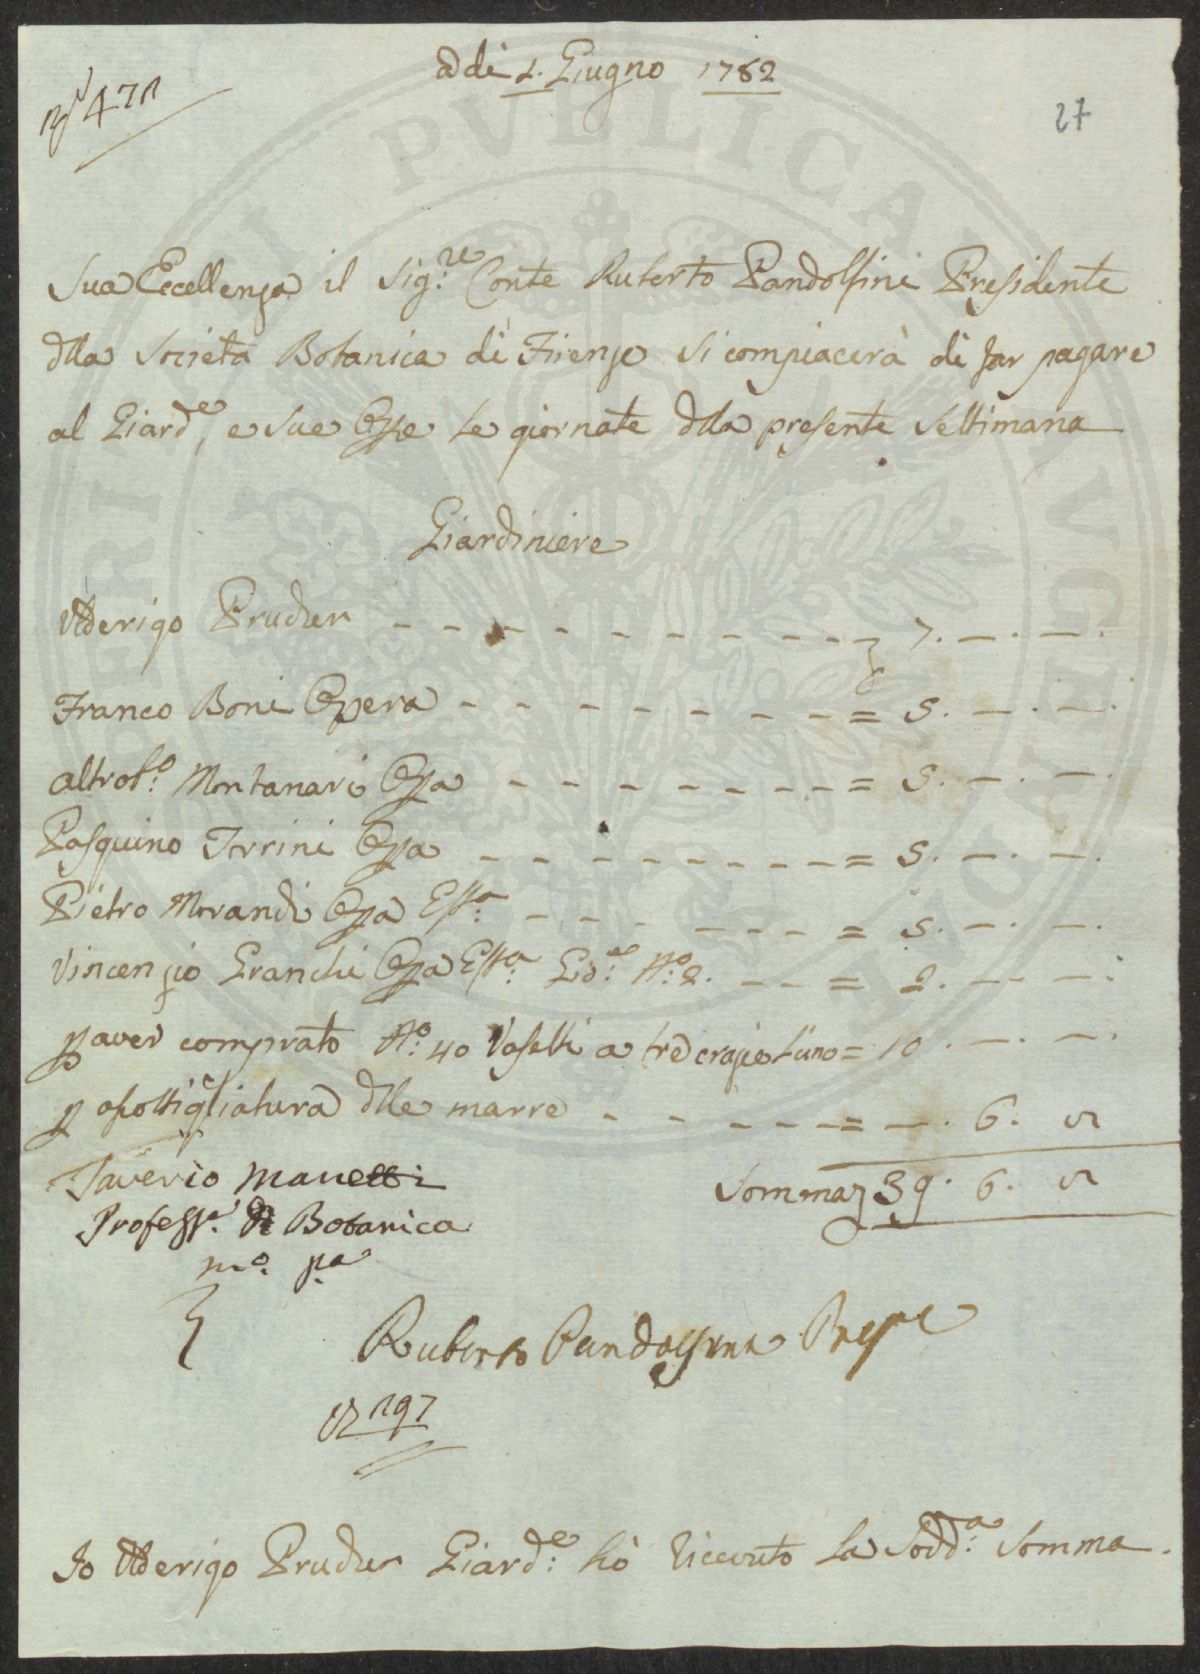 adì 1. Giugno 1782
27
Sua Eccellenza il Sig.re Conte Ruberto Pandolfini Presidente
dlla Società Botanica di Firenze si compiacerà di far pagare
al Giard.e, e sue Opre le giornate dlla presente Settimana
Giardiniere
Uderigo Pruder = 7. —. —.
Franco Boni Opera = 5. —. —.
altro f.o Montanari Opa = 5. —. —.
Pasquino Torrini Opa = 5. —. —.
Pietro Morandi Opa = 5. —. —.
Vincenzio Granchi Opa N.o 2. = 2. —. —.
p aver comprato N.o 40 Vasetti a tre crazie l'uno = 10. —. —.
p dlle marre = —. 6. 
Saverio Manetti
Profess.e di Botanica
m.o p.a
Somma 39. 6.
Ruberto Pandolfini Pres.e
Io Uderigo Pruder Giard.e hò ricevuto la Sodd.a Somma.